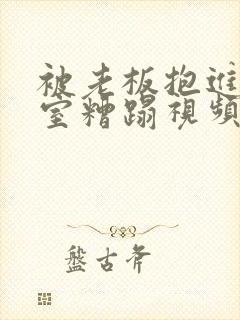 被老板抱进
室糟蹋视频
盤古斧